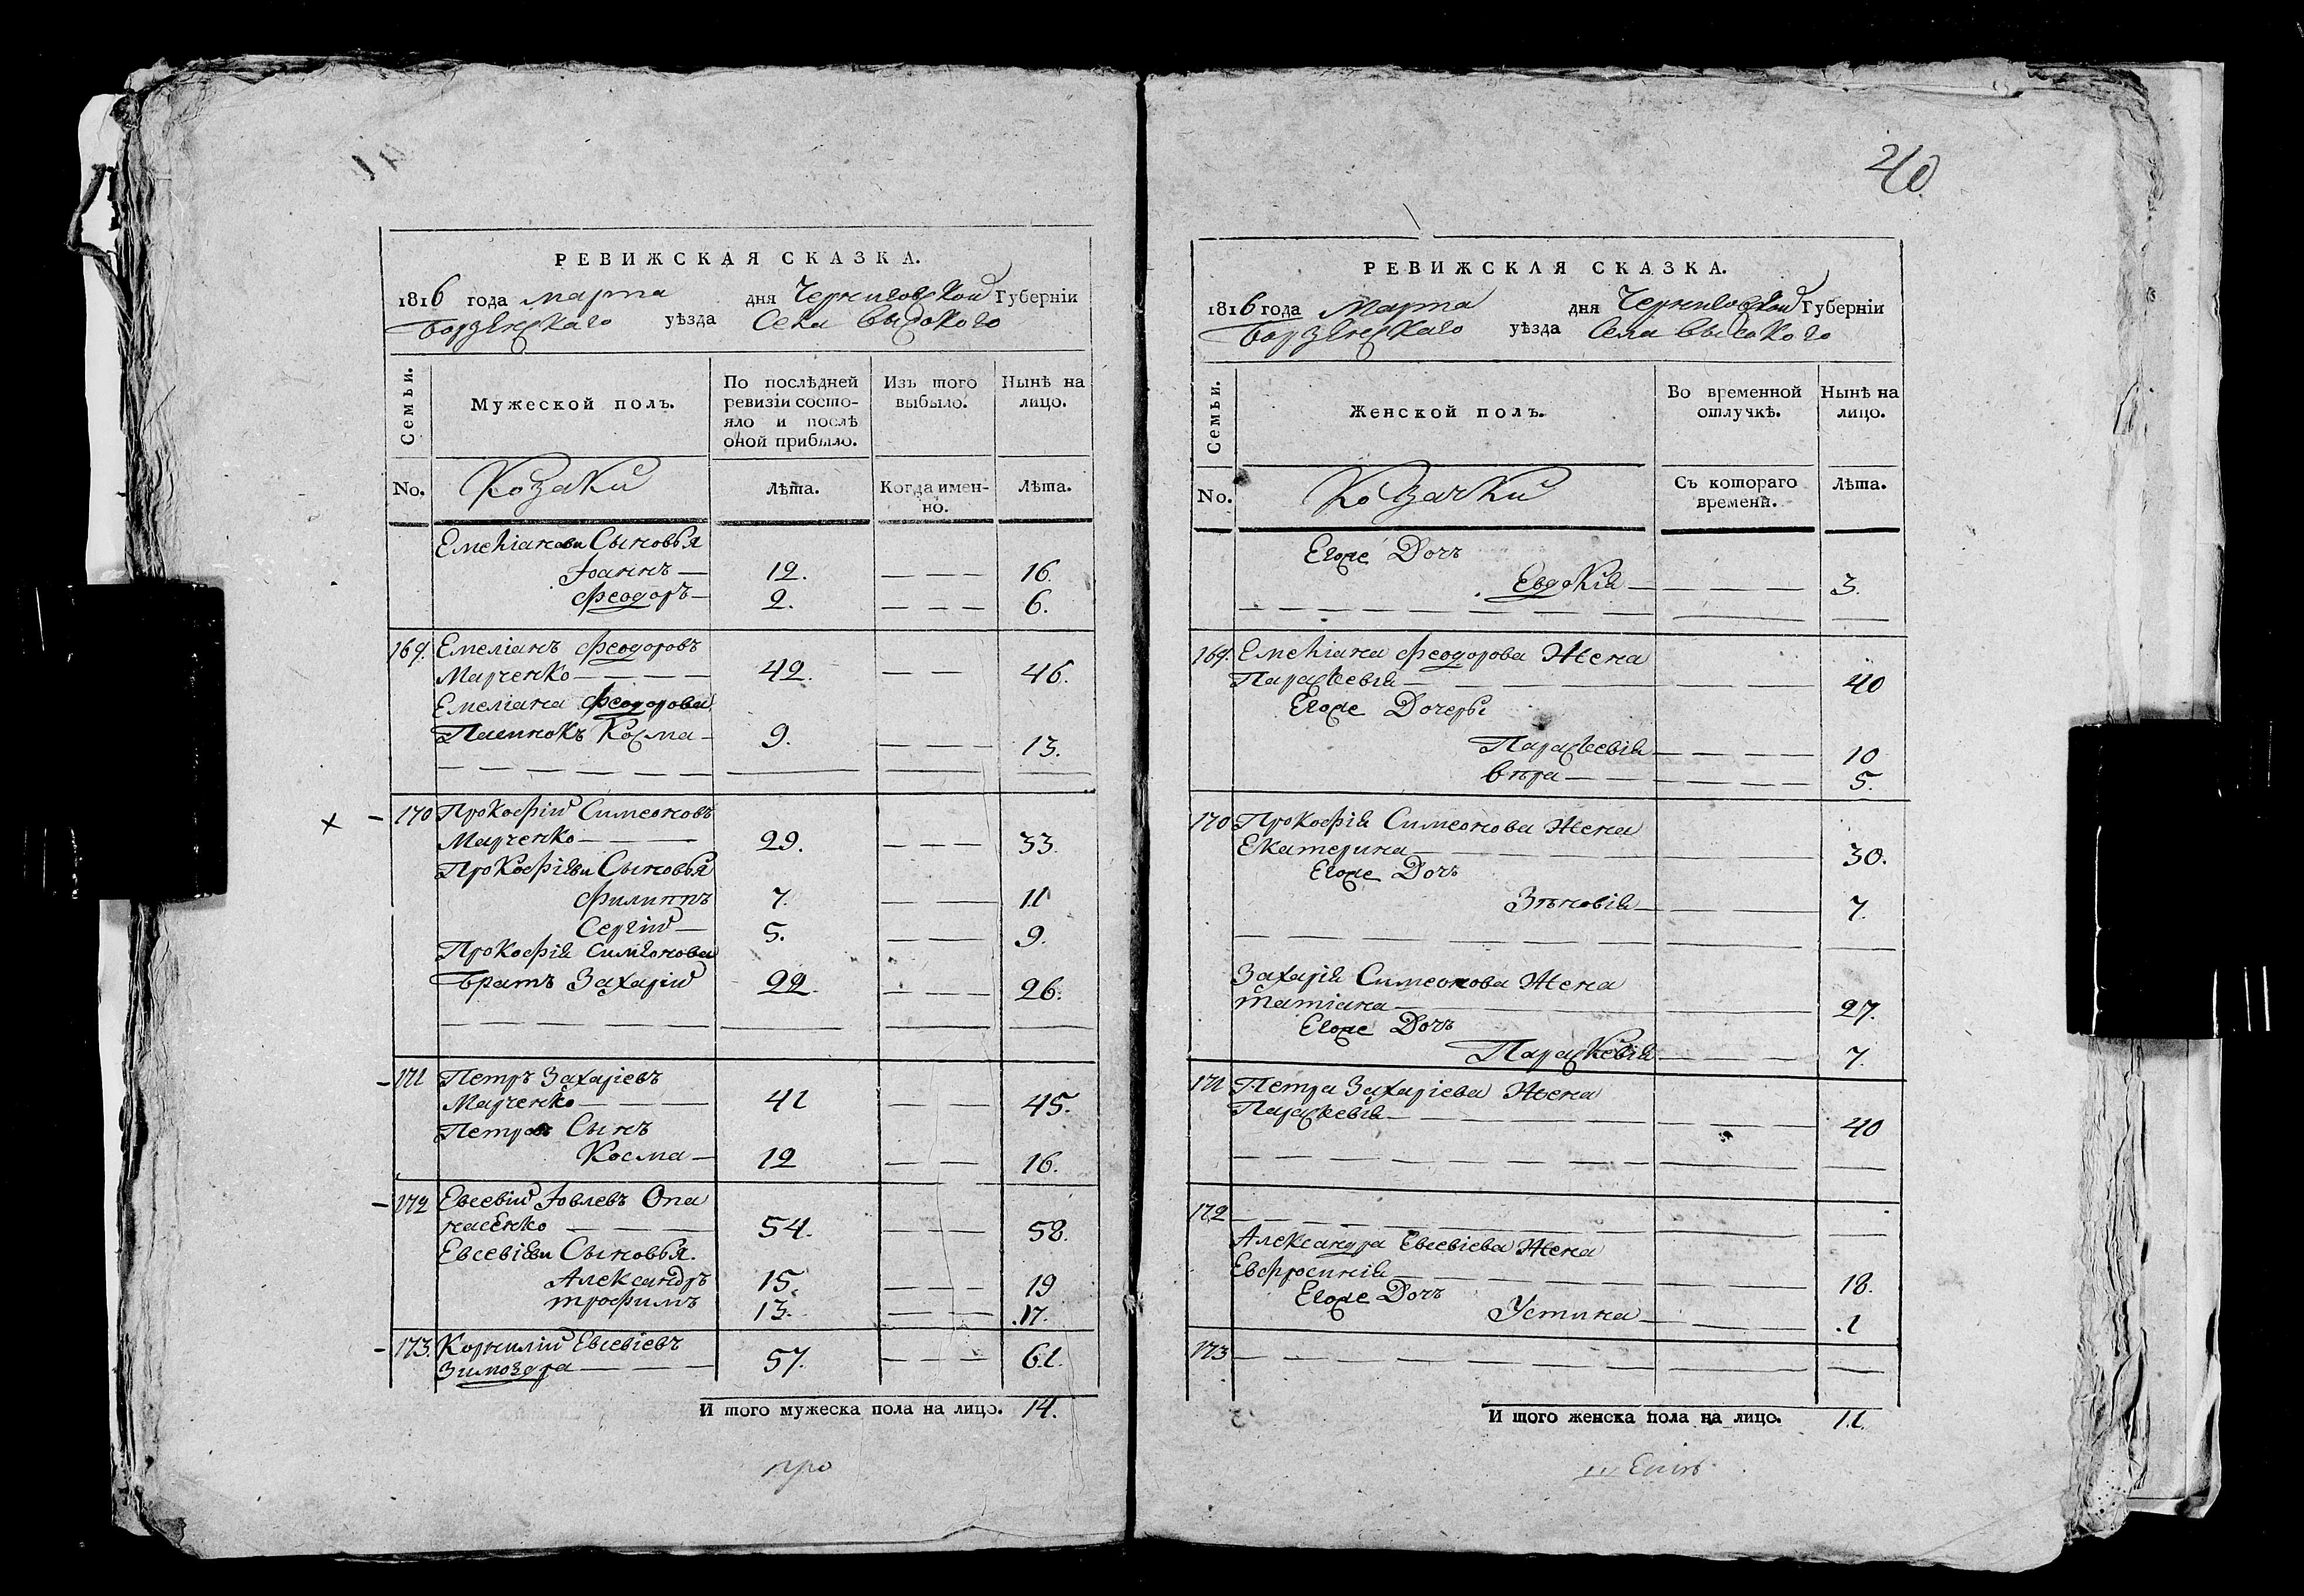 РЕВИЖСКАЯ СКАЗКА.
1816 года Марта дня Черниговской Губерніи
Борзенскаго уѣзда Села Высокого
Семьи.
Мужеской полъ.
По послѣдней ревизіи состо-
яло и послѣ
оной прибыло.
Изъ того
выбыло.
Нынѣ на
лицо.
No.
Козаки
Лѣта.
Когда имен-
но.
Лѣта.
Емеліановы Сыновья
Іоаннъ 12. 16.
Феодоръ 2. 6.
169. Емеліанъ Феодоровъ
Марченко 42. 46.
Емеліана Феодорова
Косма 9. 13.
170 Прокофій Симеоновъ
Марченко 29. 33
Прокофіевы Сыновья
Филиппъ 7. 11
Сергій 5. 9.
Прокофія Симеонова
Братъ Захарій 22. 26.
171 Петръ Захаріевъ
Марченко 41 45.
Петровъ Сынъ
Косма 12 16.
172 Евсевій Іовлевъ Опа
насенко 54. 58.
Евсевіевы Сыновья.
Александръ 15. 19
Трофимъ 13. 17.
173. Корнилій Евсевіевъ
57. 61.
И того мужеска пола на лицо. 14.
про
40
РЕВИЖСКАЯ СКАЗКА.
1816 года Марта дня Черниговской Губерніи
Борзенскаго уѣзда Села Высокого
Семьи.
Женской полъ.
Во временной
отлучкѣ.
Нынѣ на
лицо.
No.
Козачки
Съ котораго
времени.
Лѣта.
Егоже Дочь
Евдокія 3.
169. Емеліана Феодорова Жена
Параскевія 40
Егоже Дочери
Параскевія 10
Вѣра 5.
170 Прокофія Симеонова Жена
Екатерина 30.
Егоже Дочь
Зѣновія 7.
Захарія Симеонова Жена
Татіана 27.
Егоже Дочь
Параскевія 7.
171 Петра Захаріева Жена
Параскевія 40
172
Александра Евсевіева Жена
Евфросинія 18.
Егоже Дочь
Устина 1
173
И того женска пола на лицо. 11.